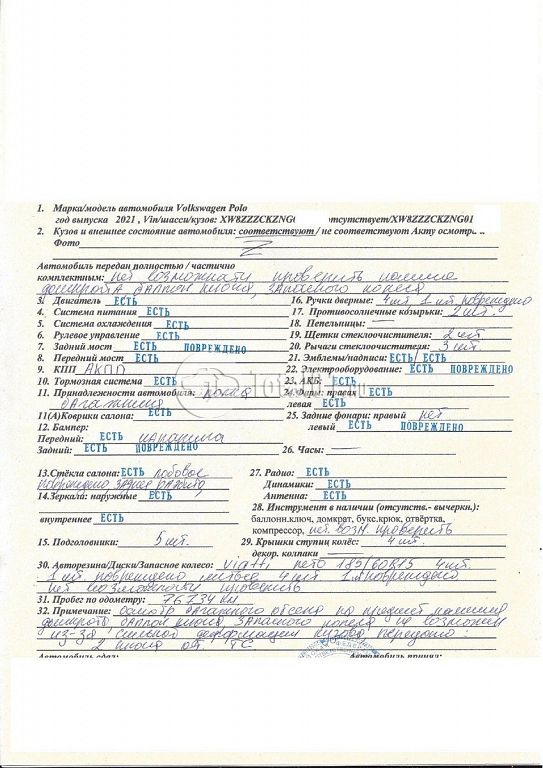 1. Марка/модель автомобиля Volkswagen Polo
год выпуска 2021 , Vin/шасси/кузов: XW8ZZZCKZNG0 отсутствует/XW8ZZZCKZNG01
2. Кузов и внешнее состояние автомобиля: соответствуют / не соответствуют Акту осмотра
Фото Z
Автомобиль передан полностью / частично
комплектным: нет возможности проверить наличие
домкрата баллон ключа, запасного колеса
3. Двигатель ЕСТЬ
16. Ручки дверные: 4 шт, 1 шт повреждено
4. Система питания ЕСТЬ
17. Противосолнечные козырьки: 2 шт.
5. Система охлаждения ЕСТЬ
18. Пепельницы: —
6. Рулевое управление ЕСТЬ
19. Щетки стеклоочистителя: 2 шт
7. Задний мост ЕСТЬ ПОВРЕЖДЕНО
20. Рычаги стеклоочистителя: 3 шт
8. Передний мост ЕСТЬ
21. Эмблемы/надписи: ЕСТЬ / ЕСТЬ
9. КПП АКПП
22. Электрооборудование: ЕСТЬ ПОВРЕЖДЕНО
10. Тормозная система ЕСТЬ
23. АКБ: ЕСТЬ
11. Принадлежности автомобиля: полка
багажника
24. Фары: правая ЕСТЬ
левая ЕСТЬ
11(А)Коврики салона: ЕСТЬ
25. Задние фонари: правый нет
левый ЕСТЬ ПОВРЕЖДЕНО
12. Бампер:
Передний: ЕСТЬ царапина
Задний: ЕСТЬ ПОВРЕЖДЕНО
26. Часы: —
13.Стёкла салона: ЕСТЬ лобовое
повреждено заднее
27. Радио: ЕСТЬ
Динамики: ЕСТЬ
Антенна: ЕСТЬ
14.Зеркала: наружные ЕСТЬ
внутреннее ЕСТЬ
28. Инструмент в наличии (отсутств.- вычеркн.):
баллонн.ключ, домкрат, букс.крюк, отвёртка,
компрессор, нет возм. проверить
15. Подголовники: 5 шт.
29. Крышки ступиц колёс: 4 шт.
декор. колпаки —
30. Авторезина/Диски/Запасное колесо: Viatti, лето 185/60R15 4 шт.
1 шт. повреждено 4 шт 1 шт повреждено
нет возможности проверить
31. Пробег по одометру: 76234 км
32. Примечание: Осмотр багажного отсека на предмет наличия
домкрата баллон ключа запасного колеса не возможен
из-за сильной деформации кузова. Передано:
2 ключа от ТС
Автомобиль сдал:
Автомобиль принял: